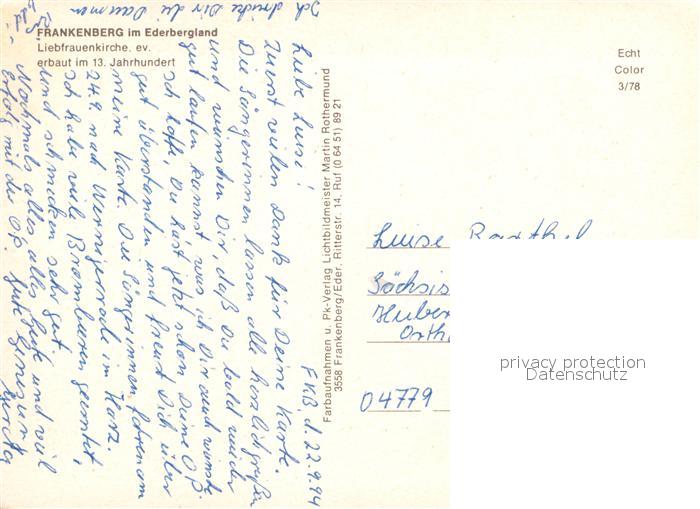 FRANKENBERG im Ederbergland
Liebfrauenkirche, ev.
erbaut im 13. Jahrhundert
Echt
Color
3/78
Farbaufnahmen u. Pk-Verlag Lichtbildmeister Martin Rothermund
3558 Frankenberg/Eder, Ritterstr. 14, Ruf (0 64 51) 89 21
FKB, d. 22.9.94
Liebe Luise!
Zuerst vielen Dank für Deine Karte.
Die Sängerinnen lassen alle herzlich grüßen
und wünschen Dir, daß Du bald wieder
gut laufen kannst was ich Dir auch wünsche.
Ich hoffe, Du hast jetzt schon Deine Op.
gut überstanden und freust Dich über
meine Karte. Die Sängerinnen fahren am
24.9. nach Wernigerode im Harz.
Ich habe viele Brombeeren geerntet,
und schmecken sehr gut.
Nochmals alles alles Gute und viel
Erfolg mit der Op. gute
Ich drücke Dir die Daumen
Luise
Sächsis
Huber
04779
privacy protection
Datenschutz